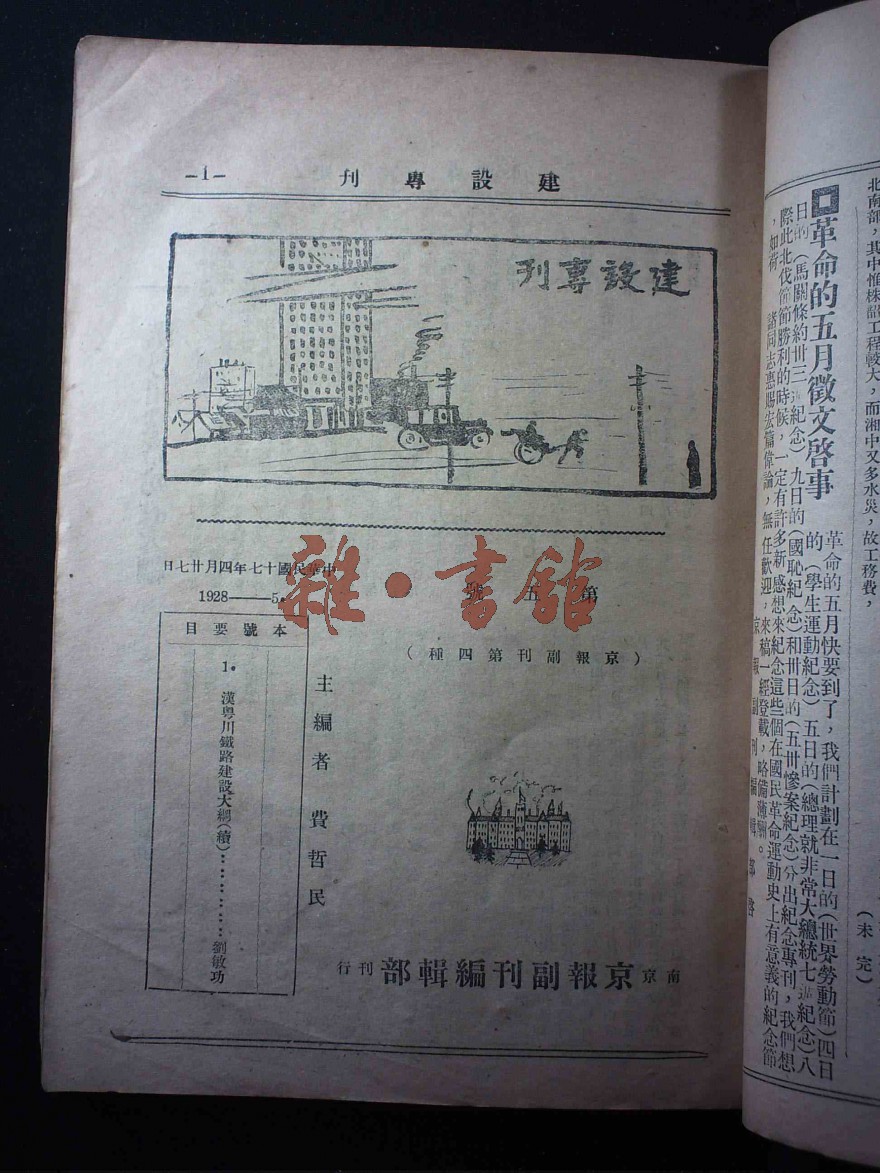 建設專刊
—1—
建設專刊
第五號
中華民國十七年四月廿七日
1928——5.
(京報副刊第四種)
本號要目
1. 漢粵川鐵路建設大綱(續)…………劉敏功
主編者 費哲民
南京 京報副刊編輯部 刊行
雜·書館
北南部,其中惟株韶工程較大,而湘中又多水災,故工務費,
(未完)
革命的五月徵文啓事
革命的五月快要到了,我們計劃在一日的(世界勞動節)四日
的(學生運動紀念)五日的(總理就非常大總統七週紀念)八
日的(馬關條約卅三週紀念)九日的(國恥紀念)和卅日的(五卅慘案紀念)分出紀念專刊,我們想
際此北伐節節勝利的時候,一定有許多新感想來紀念這些個在國民革命運動史上有意義的紀念節
,如荷 諸同志惠賜宏篇偉論,無任歡迎,來稿一經登載,略備薄酬。
京報副刊編輯部啓